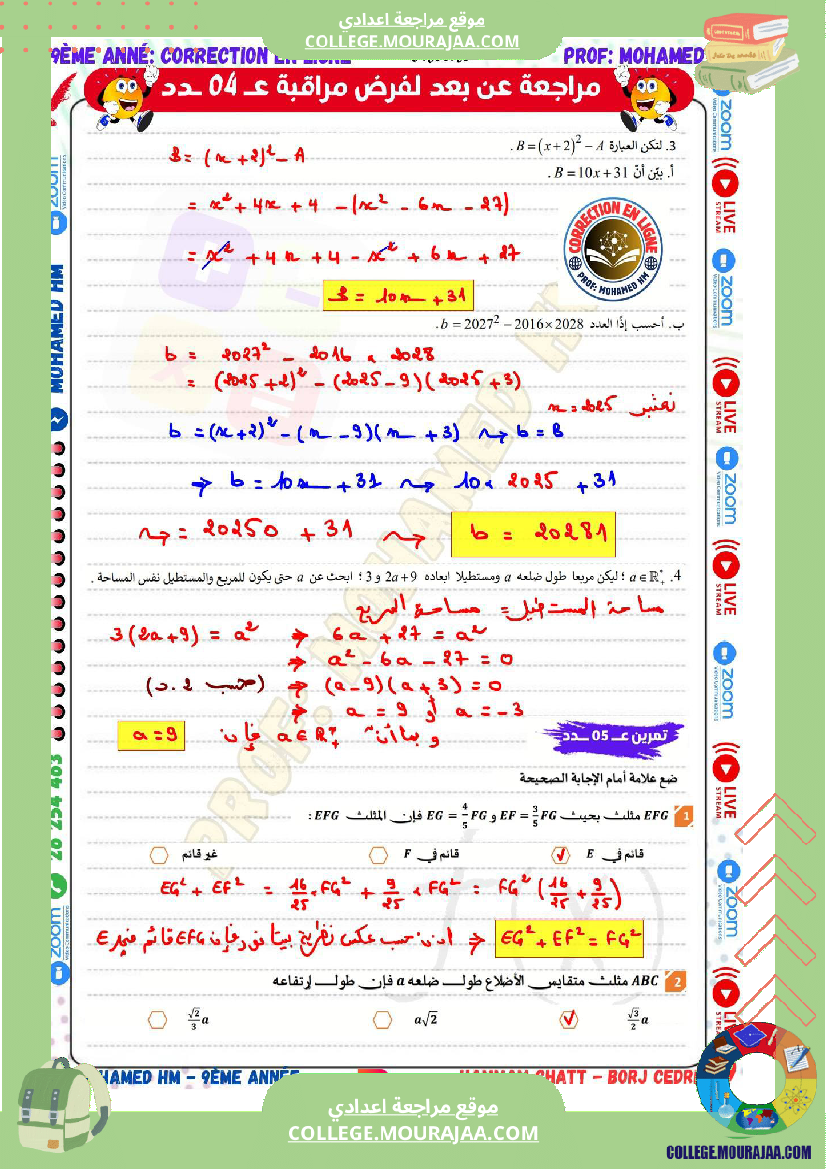 موقع مراجعة اعدادي
COLLEGE.MOURAJAA.COM
9ÈME ANNÉ: CORRECTION EN LIGNE
PROF: MOHAMED
مراجعة عن بعد لفرض مراقبة عـ 04 ـدد
3. لتكن العبارة B = (x+2)² − A .
أ. بيّن أنّ B = 10x + 31 .
B = (x+2)² − A
= x² + 4x + 4 − (x² − 6x − 27)
= x² + 4x + 4 − x² + 6x + 27
B = 10x + 31
CORRECTION EN LIGNE
PROF: MOHAMED HM
ب. أحسب إذًا العدد b = 2027² − 2016×2028 .
b = 2027² − 2016 × 2028
= (2025+2)² − (2025−9)(2025+3)
نعتبر x = 2025
b = (x+2)² − (x−9)(x+3) ⤳ b = B
⇒ b = 10x + 31 ⤳ 10 × 2025 + 31
⤳ = 20250 + 31 ⤳ b = 20281
4. a ∈ ℝ*₊ ؛ ليكن مربعا طول ضلعه a ومستطيلا ابعاده 2a+9 و 3 ؛ ابحث عن a حتى يكون للمربع والمستطيل نفس المساحة .
مساحة المستطيل = مساحة المربع
3(2a+9) = a² ⇒ 6a + 27 = a²
⇒ a² − 6a − 27 = 0
(حسب 2.د) ⇒ (a−9)(a+3) = 0
⇒ a = 9 أو a = −3
وبما أنّ a ∈ ℝ*₊ فإن a = 9
تمرين عـ 05 ـدد
ضع علامة أمام الإجابة الصحيحة
1 EFG مثلث بحيث EF = 3/5 FG و EG = 4/5 FG فإن المثلث EFG :
قائم في E
قائم في F
غير قائم
EG² + EF² = 16/25 × FG² + 9/25 × FG² = FG² (16/25 + 9/25)
EG² + EF² = FG² ⇒ اذن حسب عكس نظرية بيتاغور فإن EFG قائم في E
2 ABC مثلث متقايس الأضلاع طول ضلعه a فإن طول إرتفاعه
√3/2 a
a√2
√2/3 a
MOHAMED HM
zoom
Video Communications
LIVE
STREAM
PROF: MOHAMED HM
HAMED HM - 9ÈME ANNÉE
CHATT - BORJ CEDRI
موقع مراجعة اعدادي
COLLEGE.MOURAJAA.COM
COLLEGE.MOURAJAA.COM